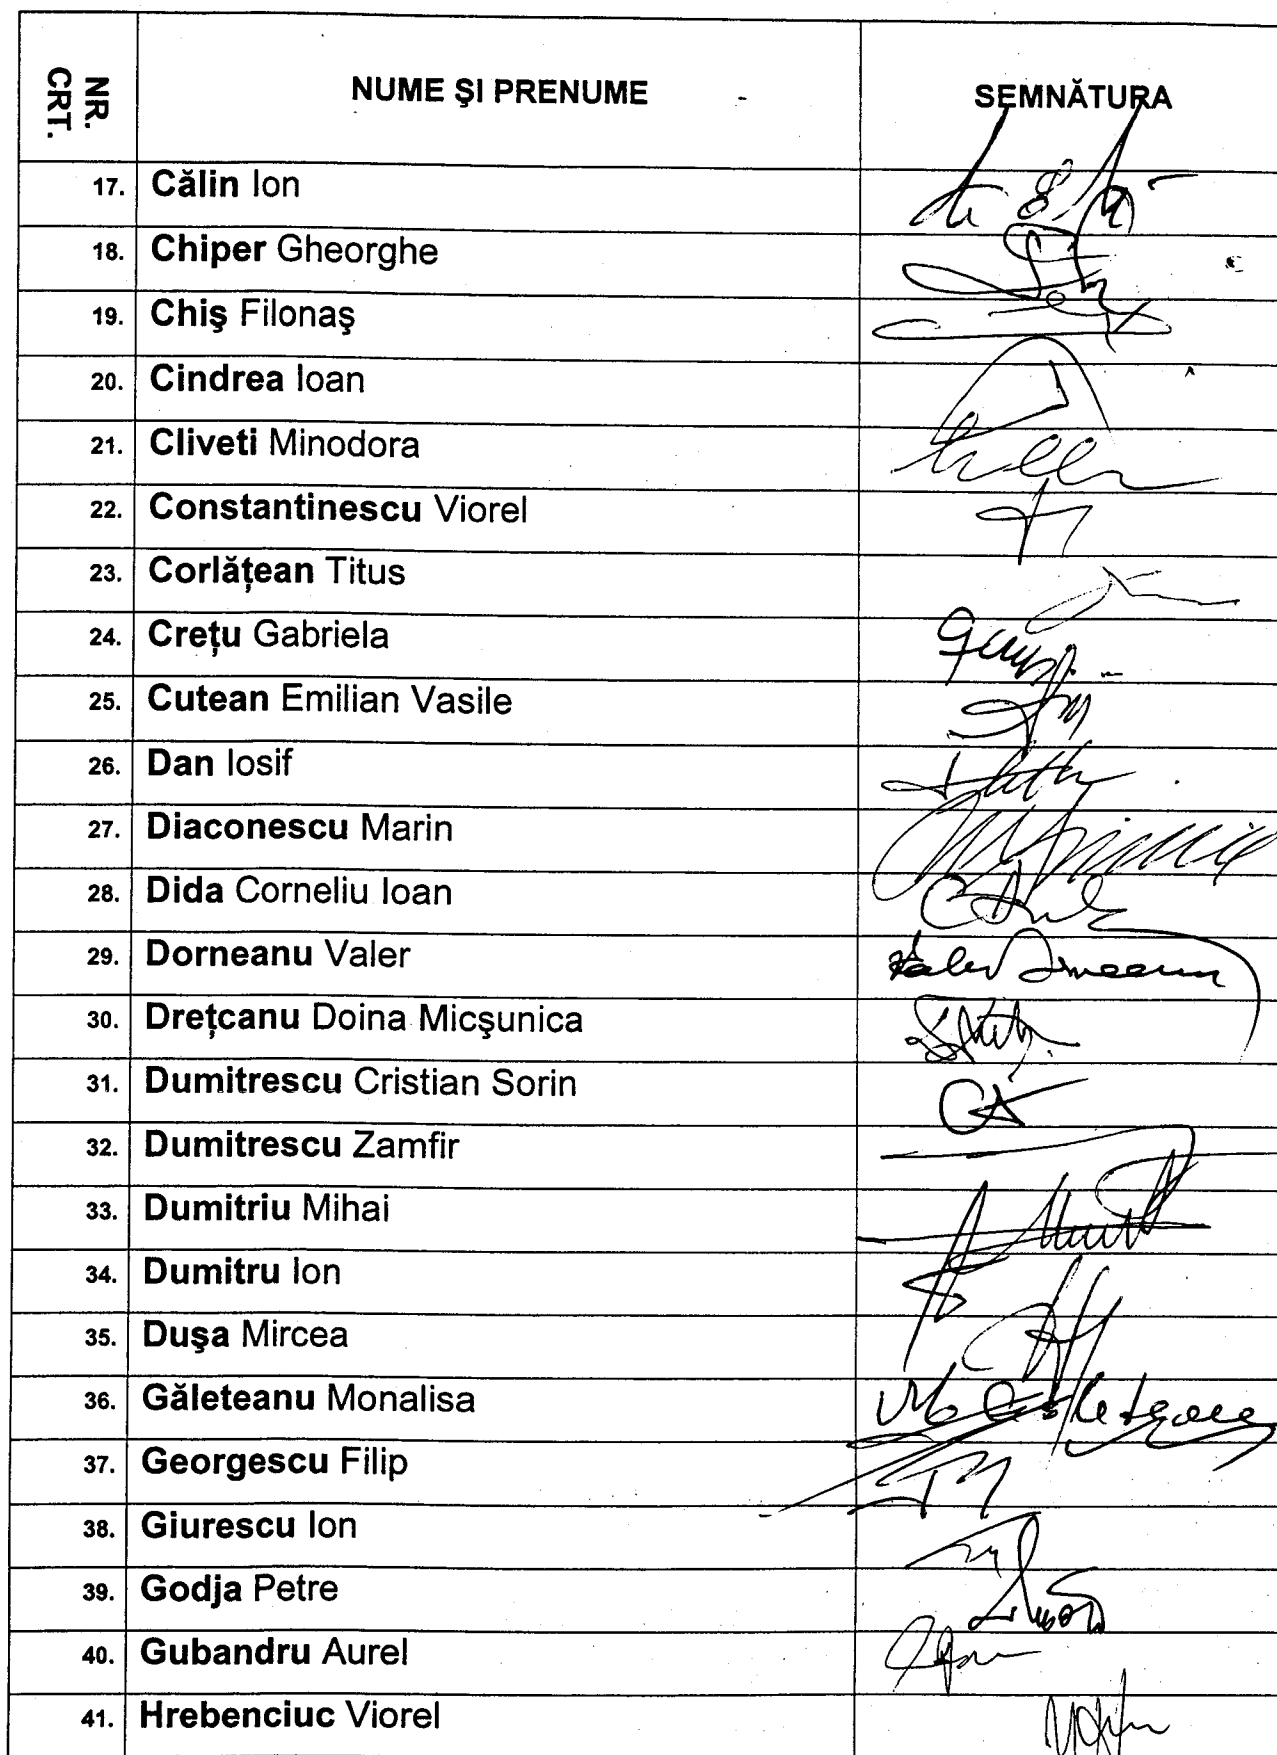 NR. CRT. NUME ŞI PRENUME SEMNĂTURA
17. Călin Ion
18. Chiper Gheorghe
19. Chiş Filonaş
20. Cindrea Ioan
21. Cliveti Minodora
22. Constantinescu Viorel
23. Corlăţean Titus
24. Creţu Gabriela
25. Cutean Emilian Vasile
26. Dan Iosif
27. Diaconescu Marin
28. Dida Corneliu Ioan
29. Dorneanu Valer
30. Dreţcanu Doina Micşunica
31. Dumitrescu Cristian Sorin
32. Dumitrescu Zamfir
33. Dumitriu Mihai
34. Dumitru Ion
35. Duşa Mircea
36. Găleteanu Monalisa
37. Georgescu Filip
38. Giurescu Ion
39. Godja Petre
40. Gubandru Aurel
41. Hrebenciuc Viorel